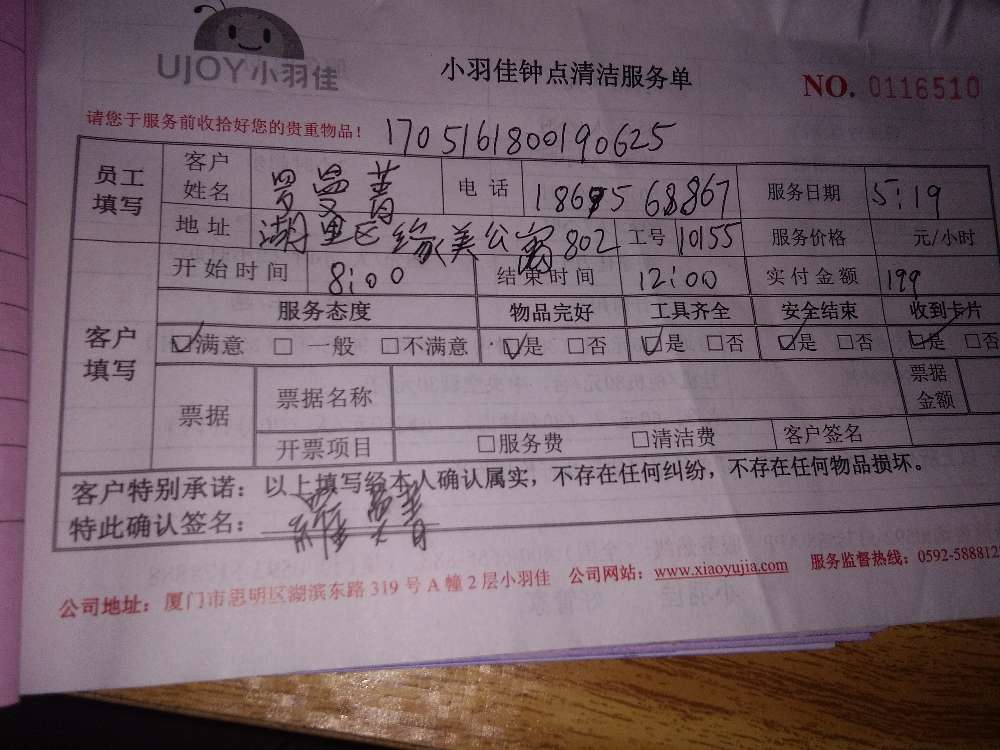 UJOY小羽佳
小羽佳钟点清洁服务单
NO. 0116510
请您于服务前收拾好您的贵重物品！
1705161800190625
员工填写 客户姓名 罗曼菁 电话 18695 68867 服务日期 5:19
地址 湖里区缘美公寓802 工号 10155 服务价格 元/小时
开始时间 8:00 结束时间 12:00 实付金额 199
客户填写 服务态度 物品完好 工具齐全 安全结束 收到卡片
☑满意 □ 一般 □不满意 ☑是 □否 ☑是 □否 ☑是 □否 ☑是 □否
票据 票据名称 票据金额
开票项目 □服务费 □清洁费 客户签名
客户特别承诺：以上填写经本人确认属实，不存在任何纠纷，不存在任何物品损坏。
特此确认签名：罗曼菁
公司地址：厦门市思明区湖滨东路 319 号 A 幢 2 层小羽佳 公司网站：www.xiaoyujia.com 服务监督热线：0592-588812